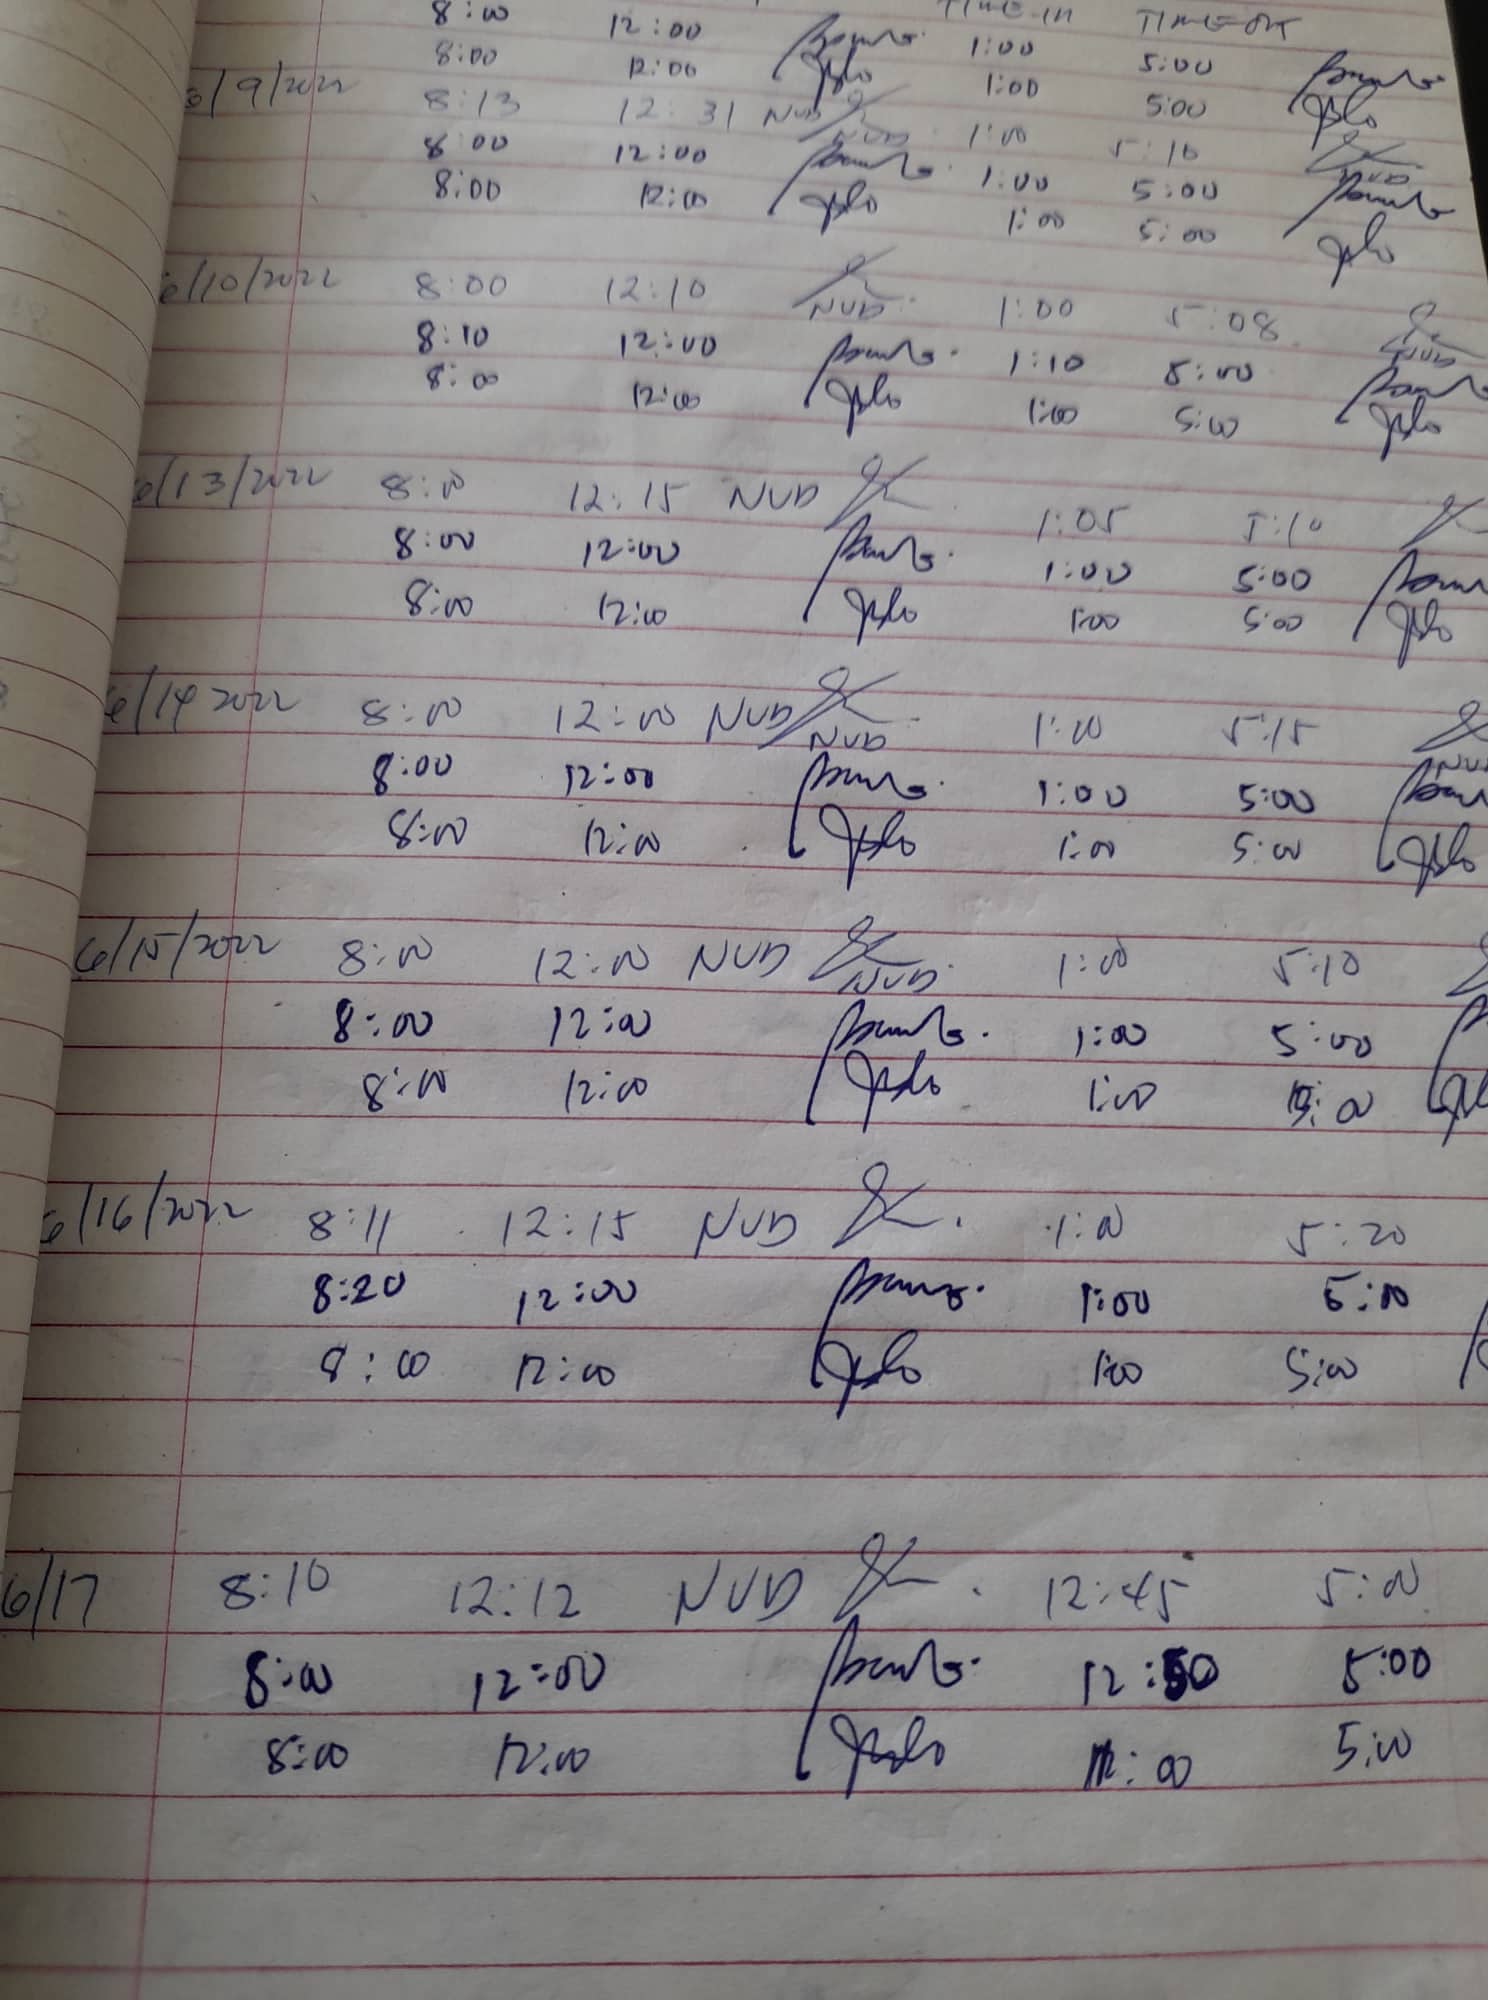 TIME-IN TIME-OUT
8:00 12:00 1:00 5:00
8:00 12:00 1:00 5:00
6/9/2022 8:13 12:31 NVD NVD 1:00 5:10 NVD
8:00 12:00 1:00 5:00
8:00 12:00 1:00 5:00
6/10/2022 8:00 12:10 NVD 1:00 5:08 NVD
8:10 12:00 1:10 5:00
8:00 12:00 1:00 5:00
6/13/2022 8:00 12:15 NVD 1:05 5:10
8:00 12:00 1:00 5:00
8:00 12:00 1:00 5:00
6/14 2022 8:00 12:00 NVD NVD 1:00 5:15 NVD
8:00 12:00 1:00 5:00
8:00 12:00 1:00 5:00
6/15/2022 8:00 12:00 NVD NVD 1:00 5:10
8:00 12:00 1:00 5:00
8:00 12:00 1:00 5:00
6/16/2022 8:11 12:15 NVD 1:00 5:20
8:20 12:00 1:00 5:00
8:00 12:00 1:00 5:00
6/17 8:10 12:12 NVD 12:45 5:00
8:00 12:00 12:50 5:00
8:00 12:00 5:00